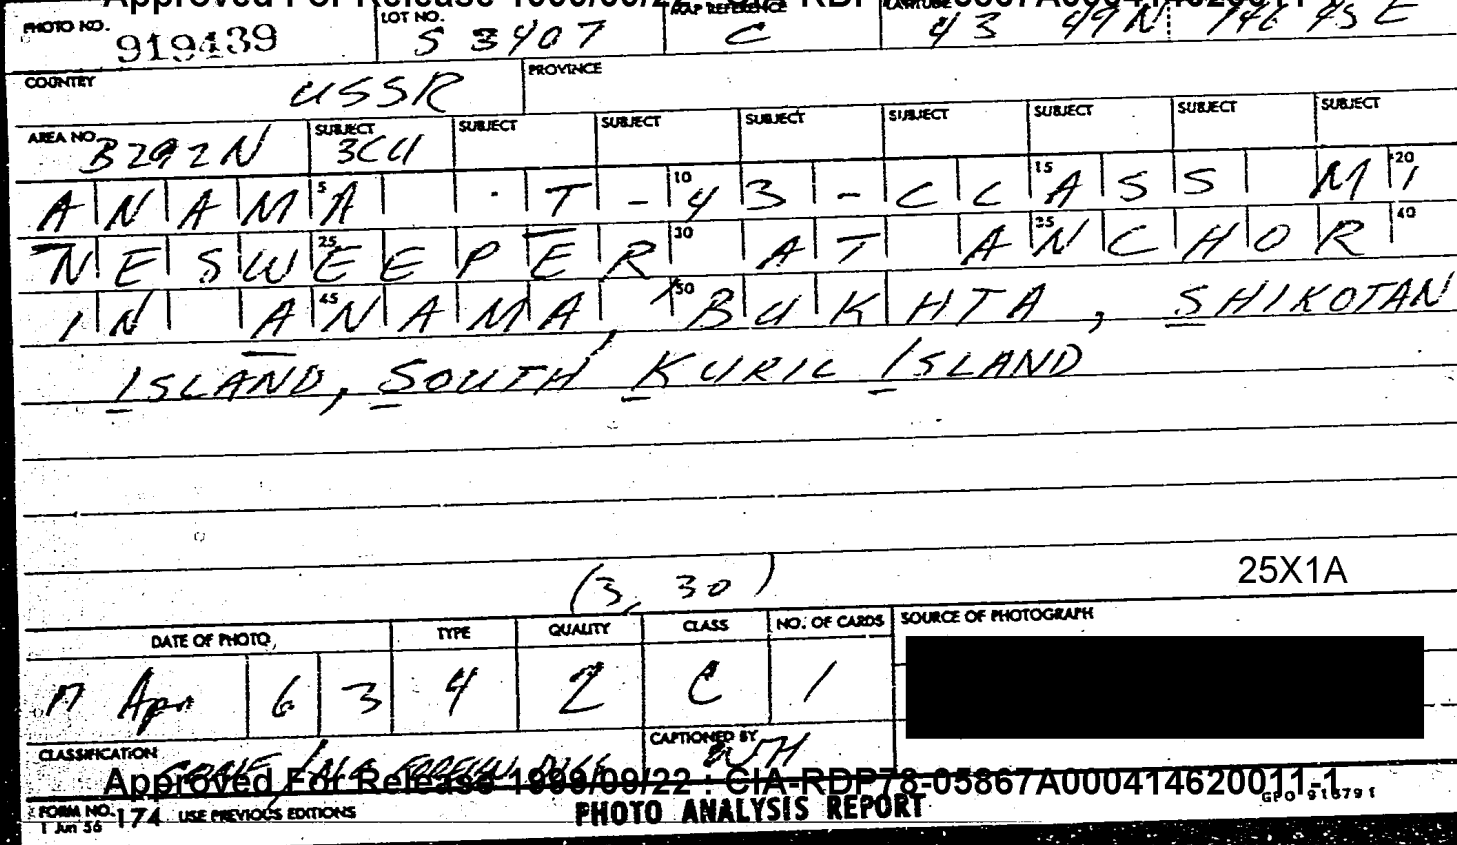 Approved For Release 1999/09/22 : CIA-RDP78-05867A000414620011-1
PHOTO NO. 919439 LOT NO. S 3407 MAP REFERENCE C LATITUDE 43 49N 146 45E
COUNTRY USSR PROVINCE
AREA NO. B292N SUBJECT 3CU SUBJECT SUBJECT SUBJECT SUBJECT SUBJECT SUBJECT SUBJECT
ANAMA . T-43-CLASS MI
NESWEEPER AT ANCHOR
IN ANAMA, BUKHTA, SHIKOTAN
ISLAND, SOUTH KURIL ISLAND
(3, 30)
25X1A
DATE OF PHOTO TYPE QUALITY CLASS NO. OF CARDS SOURCE OF PHOTOGRAPH
17 Apr 63 4 2 C 1
CLASSIFICATION CONF/NO FOREIGN DISS CAPTIONED BY WH
Approved For Release 1999/09/22 : CIA-RDP78-05867A000414620011-1
FORM NO. 174 USE PREVIOUS EDITIONS PHOTO ANALYSIS REPORT GPO 916791
1 Jun 56